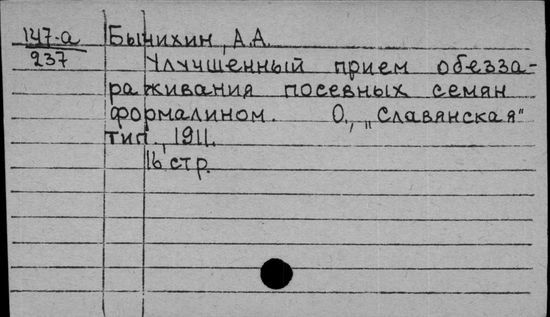 147-а Бычихин, А.А.
237 Улучшенный прием обезза-
раживания посевных семян
формалином. О., „Славянская"
тип., 1911.
16 стр.